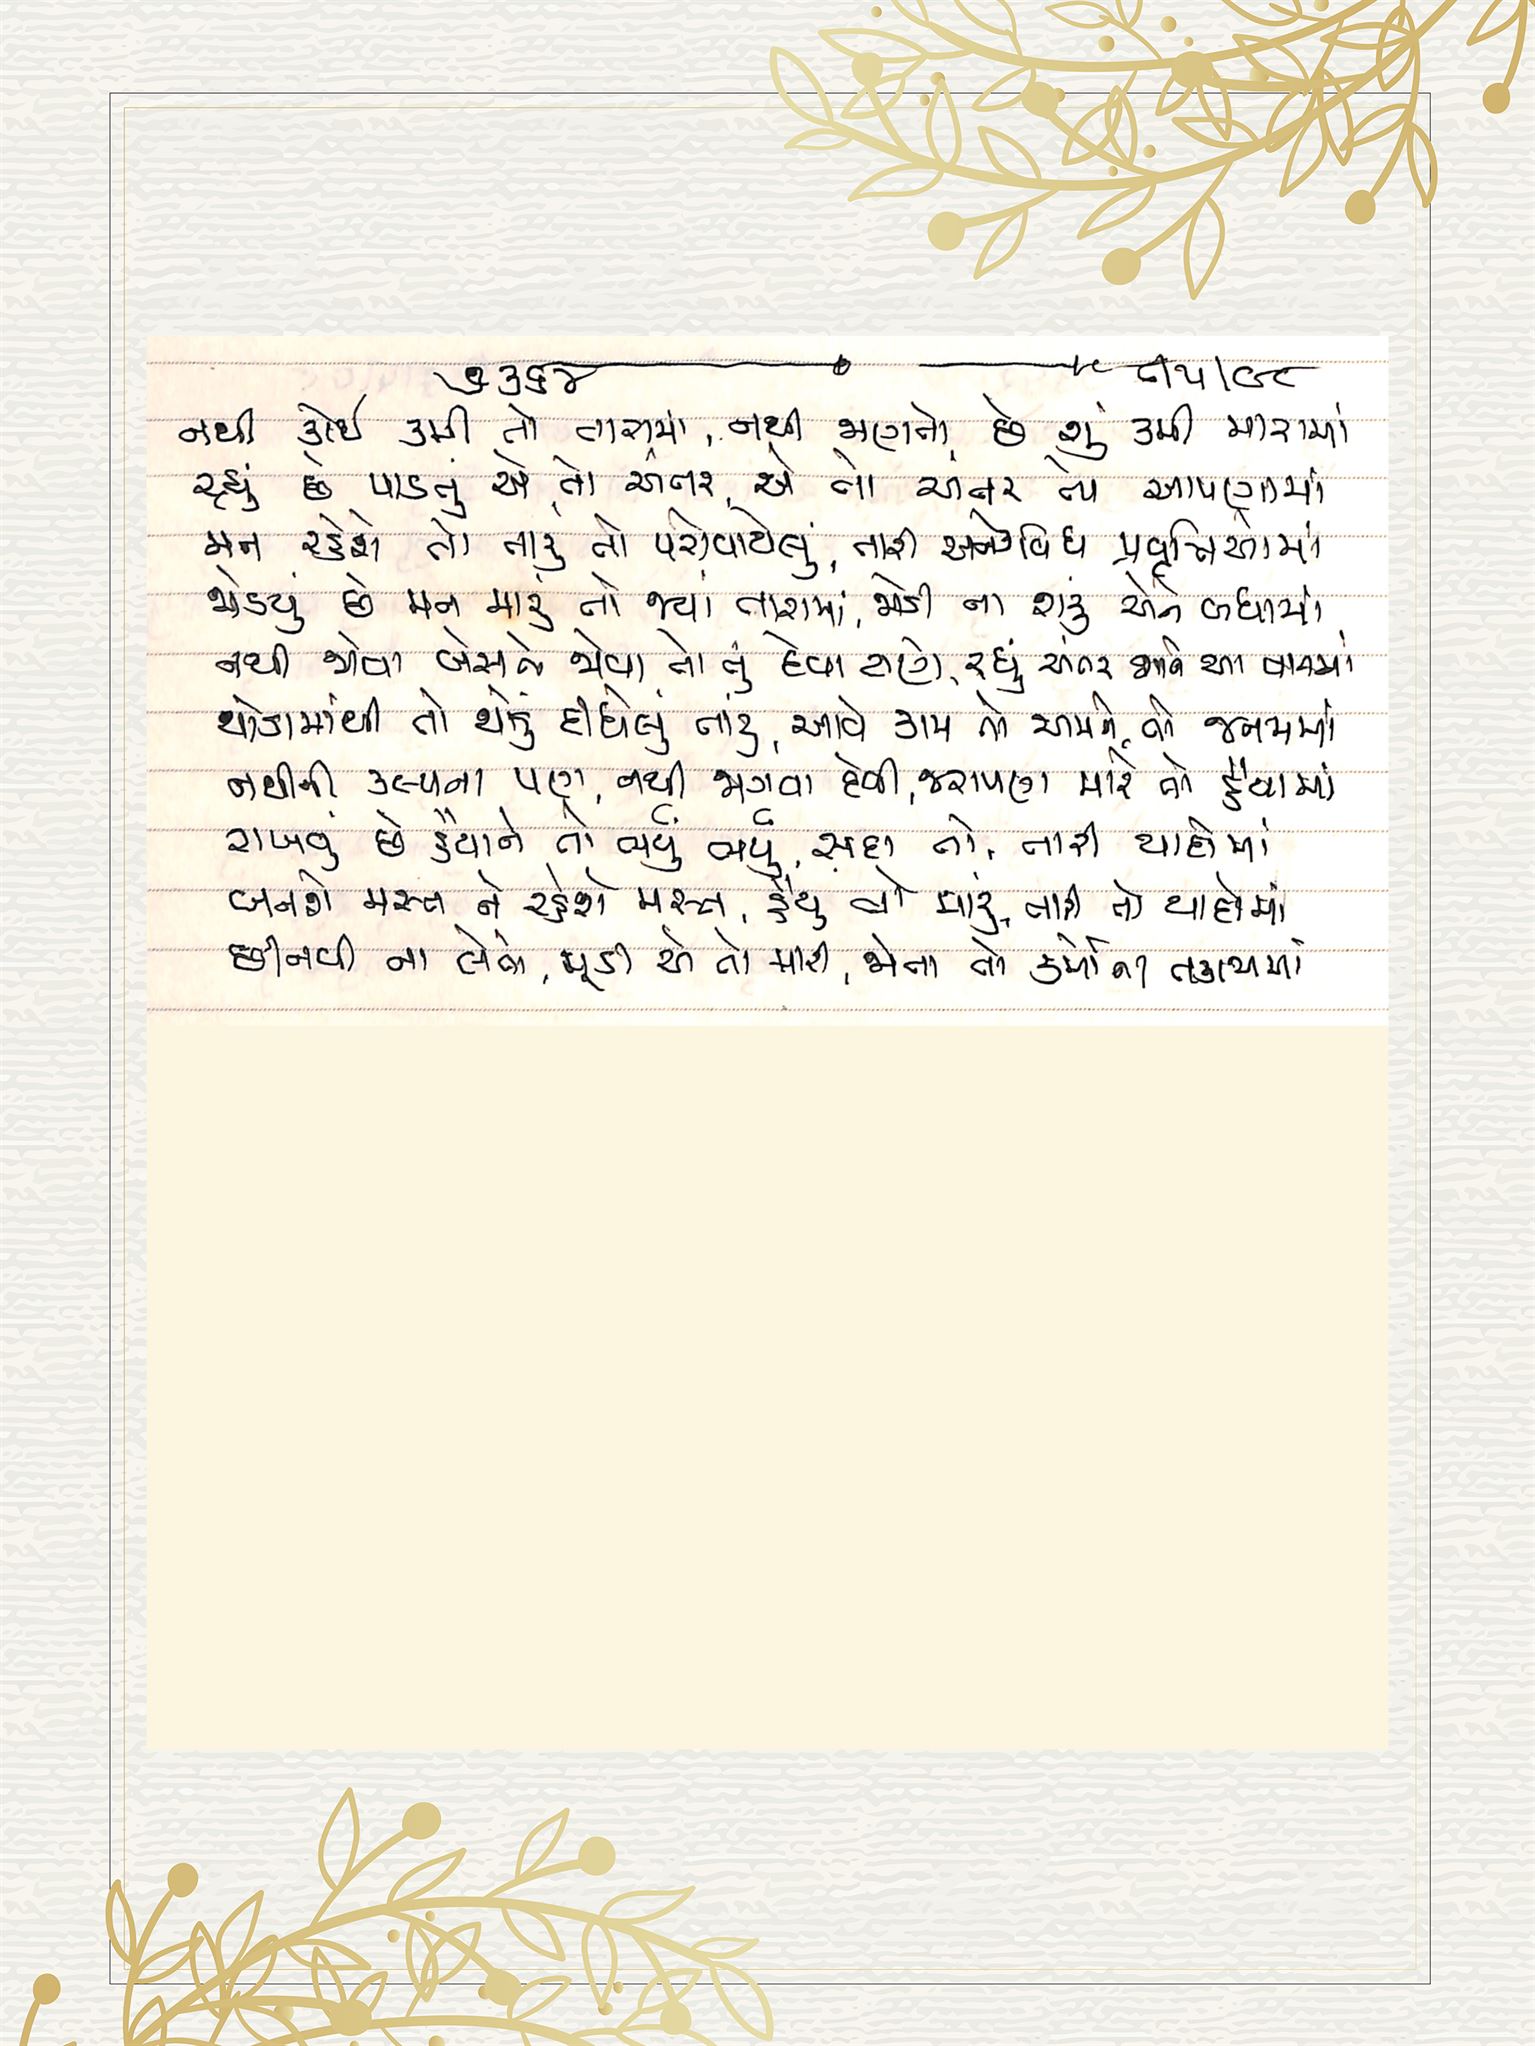 ૭૩૬૪
નથી કોઈ કમી તો તારામાં, નથી જાણતો, છે શું કમી મારામાં
રહ્યું છે પાડતું એ તો અંતર, એ તો અંતર તો આપણામાં
મન રહેશે તો તારું તો પરોવાયેલું, તારી અનેકવિધ પ્રવૃત્તિઓમાં
જોડયું છે મન મારું તો જ્યાં તારામાં, જોડી ના શકું એને બધામાં
નથી જોવા બેસતો જોવા તો તું દેવા ટાણે, રહ્યું અંતર આ વાતમાં
થોડામાંથી તો થોડું દીધેલું તારું, આવે કામ તો અમને તો જનમમાં
નથીની કલ્પના પણ, નથી જાગવા દેવી, જરાપણ મારે તો હૈયામાં
રાખવું છે હૈયાને તો ભર્યું ભર્યું, સદા તો, તારી યાદોમાં
બનશે મસ્ત ને રહેશે મસ્ત, હૈયું તો મારું, તારી તો યાદોમાં
છીનવી ના લેતો, મૂડી એ તો મારી, જોતા તો કર્મોના